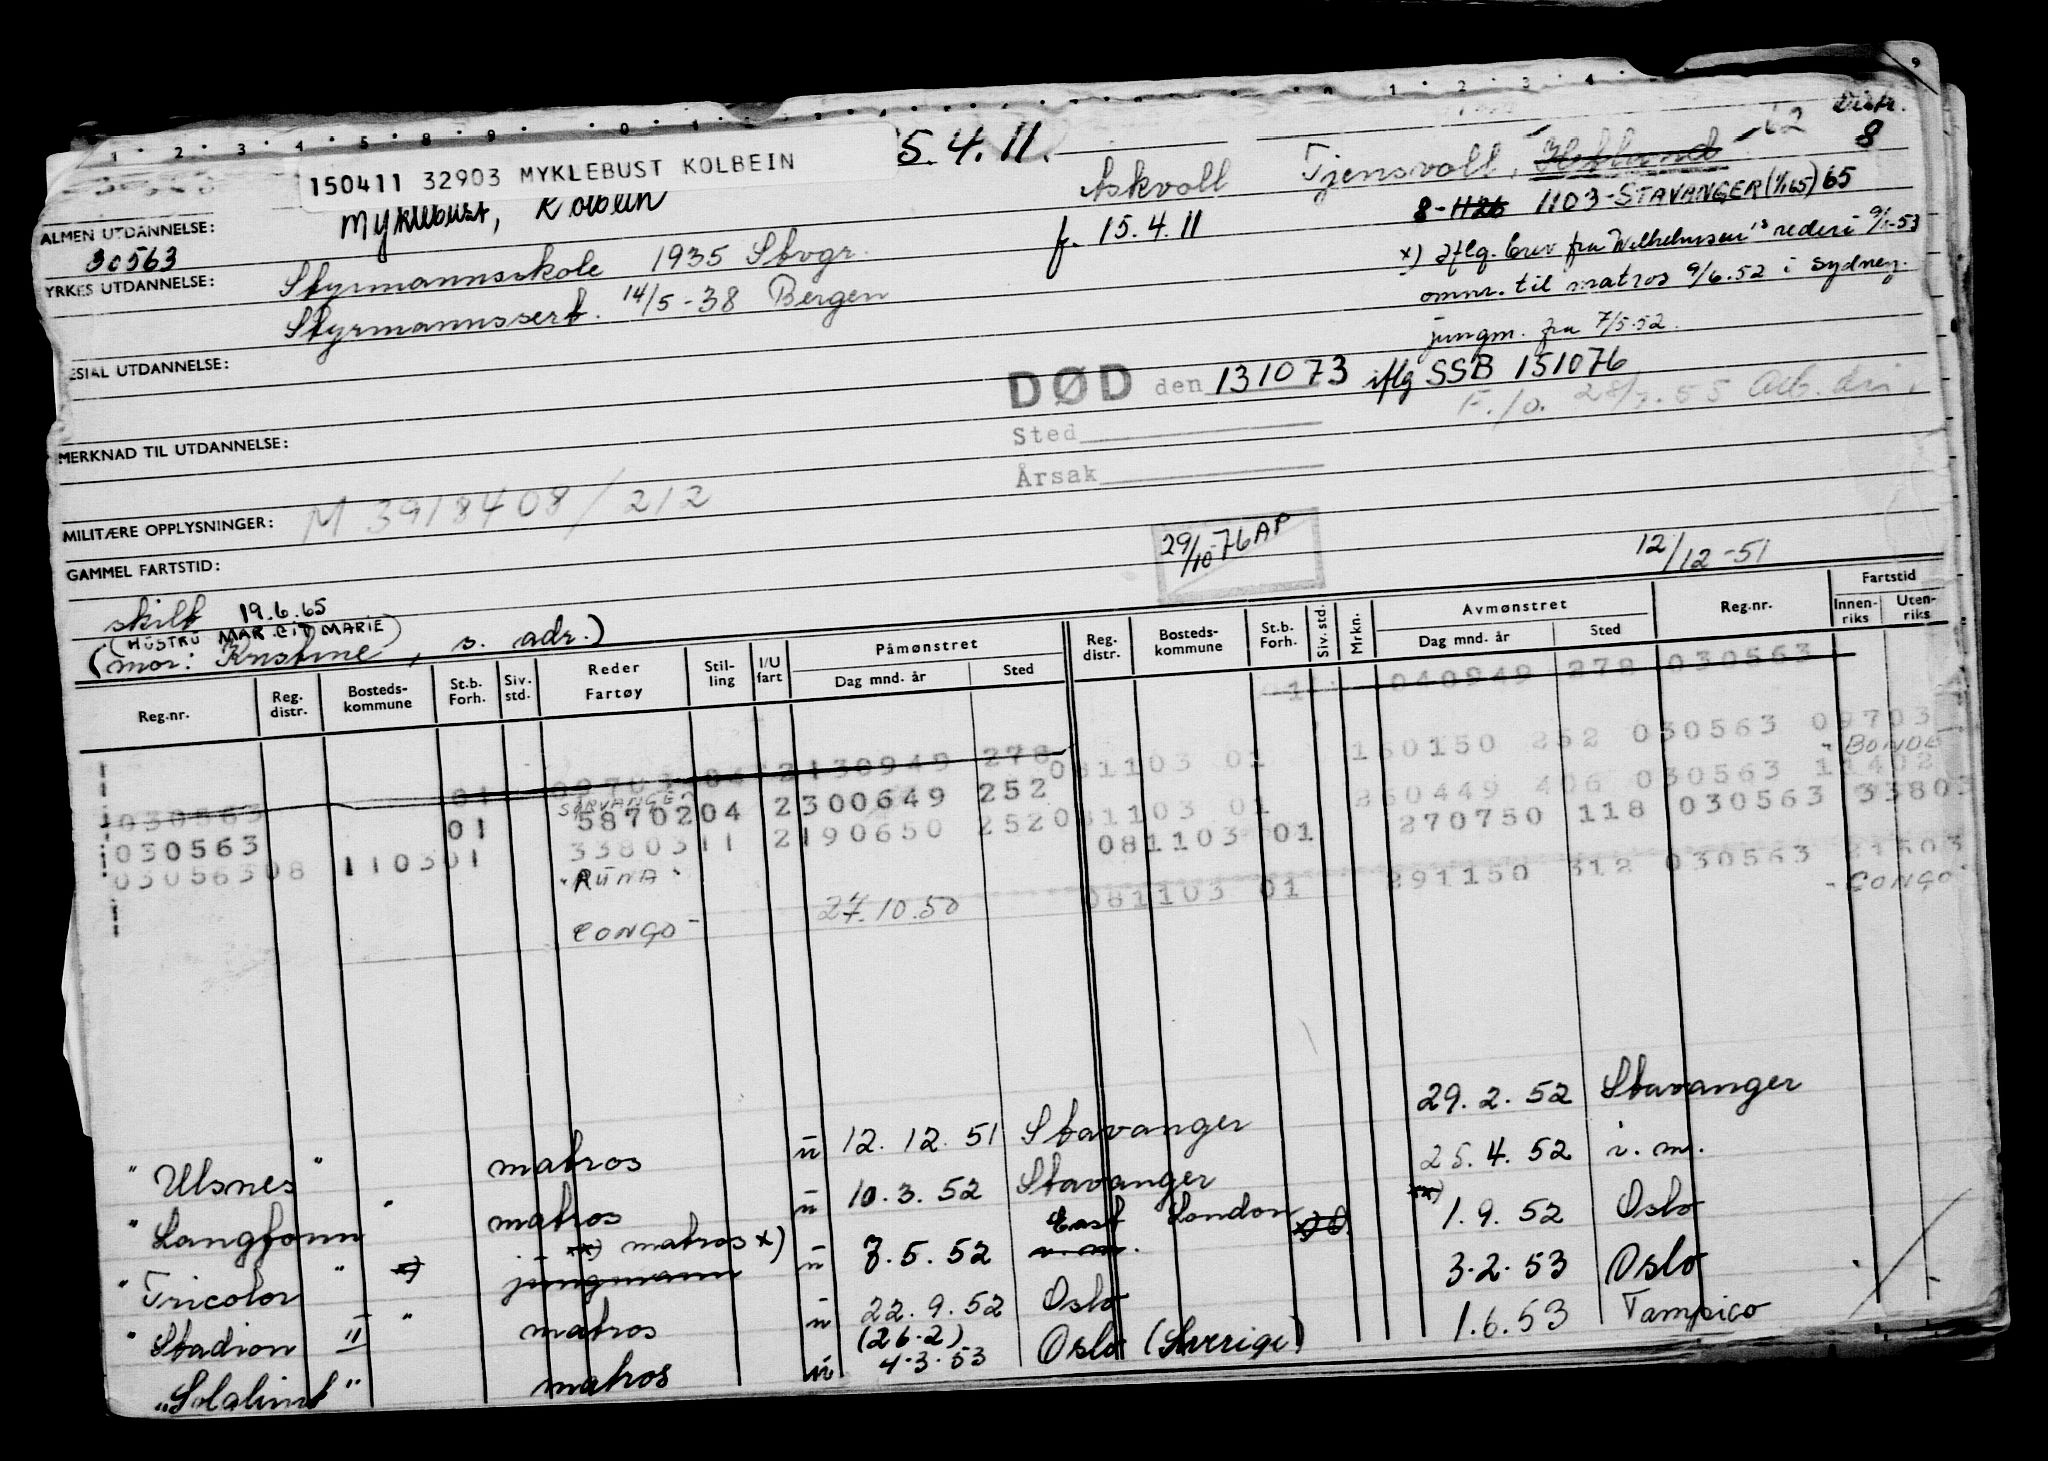 Distr.
150411 32903 MYKLEBUST KOLBEIN 5.4.11. Askvoll Tjensvoll, -62 8
Myklebust, Kolbein f. 15.4.11 8-1126 1103-STAVANGER (1/1 65) 65
ALMEN UTDANNELSE:
30563
x) Iflg. brev fra Wilhelmsen's rederi 9/1-53
YRKES UTDANNELSE: Styrmannsskole 1935 Stvgr.
omnr. til matros 9/6.52 i Sydney.
Styrmannssert. 14/5-38 Bergen
jungm. fra 7/5.52.
ESIAL UTDANNELSE:
DØD den 131073 iflg SSB 151076
F./o. 28/7.55
Sted
MERKNAD TIL UTDANNELSE:
Årsak
MILITÆRE OPPLYSNINGER: M 3918408/212
29/10-76 AP
GAMMEL FARTSTID:
12/12-51
skilt 19.6.65
(HUSTRU MARGIT MARIE)
(mor: Kristine, s. adr.)
Reg.nr. Reg. distr. Bosteds-kommune St.b. Forh. Siv. std. Reder Fartøy Stil-ling I/U fart Påmønstret Dag mnd. år Sted Reg. distr. Bosteds-kommune St.b. Forh. Siv. std. Mrkn. Avmønstret Dag mnd. år Sted Reg.nr. Fartstid Innen-riks Uten-riks
01 040949 278 030563
030563 01 2130949 278 081103 01 150150 252 030563 09703
"BONDE
STAVANGER
030563 01 5870204 2300649 252 081103 01 260449 406 030563 11402
03056308 110301 3380311 2190650 252 081103 01 270750 118 030563 33803
"RUNA"
081103 01 291150 312 030563 21503
CONGO - 27.10.50
- CONGO -
"Ulsnes" matros u 12.12.51 Stavanger 29.2.52 Stavanger
"Langfonn" matros u 10.3.52 Stavanger 25.4.52 u.m.
xx) matros x) East London xx)
"Tricolor" x) jungmann u 7.5.52 u.m. 1.9.52 Oslo
"Stadion II" matros u 22.9.52 Oslo 3.2.53 Oslo
(26.2)
"Solglimt" matros u 4.3.53 Oslo (Sverige) 1.6.53 Tampico